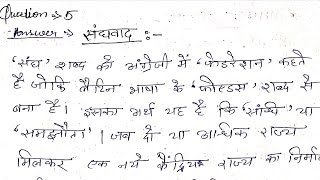 Question ⇒ 5
Answer ⇒ संघवाद :-
'संघ' शब्द को अंग्रेजी में 'फेडरेशन' कहते
है जोकि लैटिन भाषा के 'फोएडस' शब्द से
बना है। इसका अर्थ यह है कि 'सांधि' या
'समझौता'। जब दो या अधिक राज्य
मिलकर एक नये केंद्रिय राज्य का निर्माण